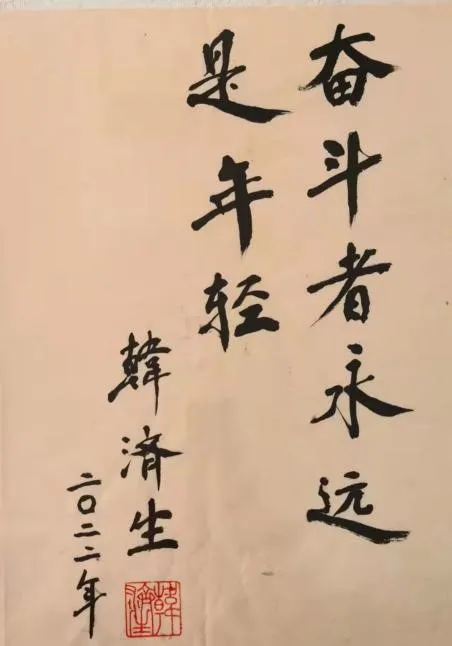 奋斗者永远
是年轻
韓济生
二〇二二年
韓濟生